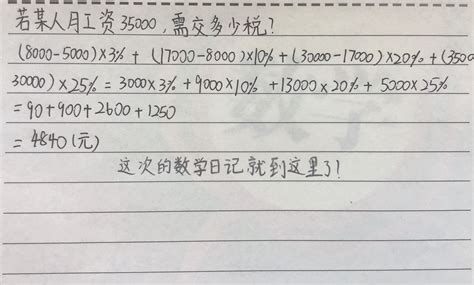 若某人月工资35000,需交多少税?
(8000-5000)×3% + (17000-8000)×10% + (30000-17000)×20% + (3500
30000)×25% = 3000×3% + 9000×10% + 13000×20% + 5000×25%
= 90+900+2600+1250
= 4840(元)
这次的数学日记就到这里了!